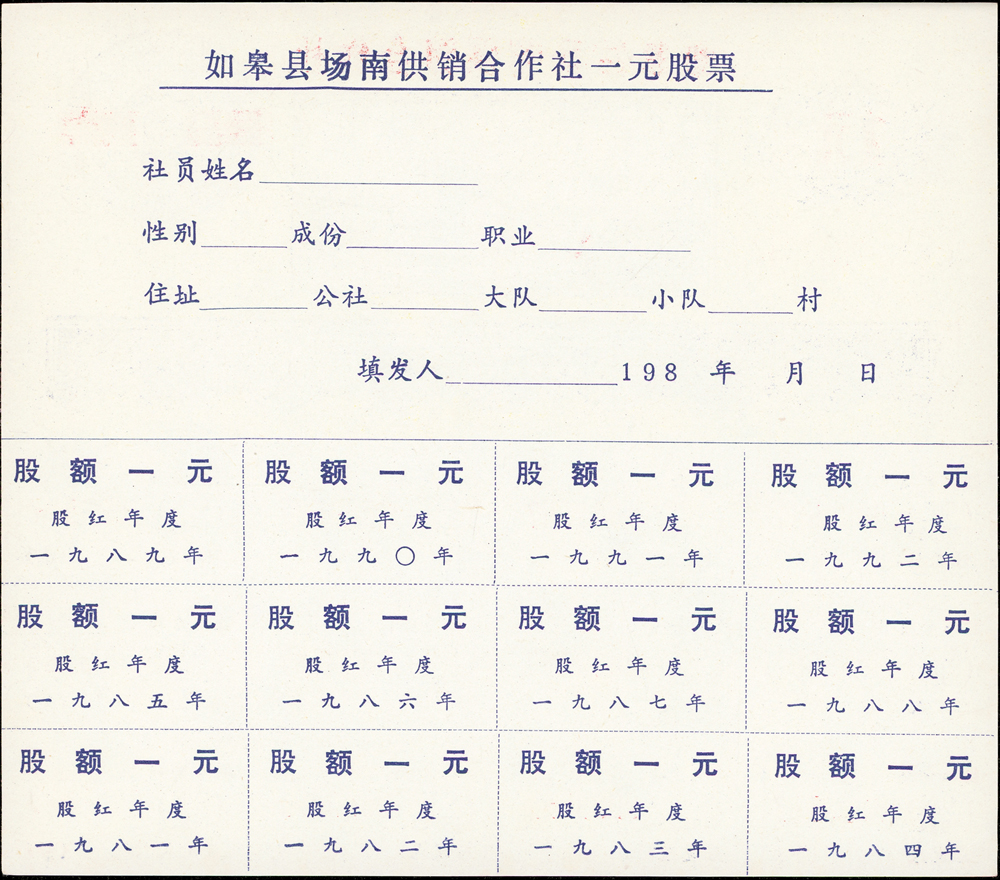 如皋县场南供销合作社一元股票
社员姓名
性别 成份 职业
住址 公社 大队 小队 村
填发人 198 年 月 日
股额一元 股额一元 股额一元 股额一元
股红年度 股红年度 股红年度 股红年度
一九八九年 一九九〇年 一九九一年 一九九二年
股额一元 股额一元 股额一元 股额一元
股红年度 股红年度 股红年度 股红年度
一九八五年 一九八六年 一九八七年 一九八八年
股额一元 股额一元 股额一元 股额一元
股红年度 股红年度 股红年度 股红年度
一九八一年 一九八二年 一九八三年 一九八四年